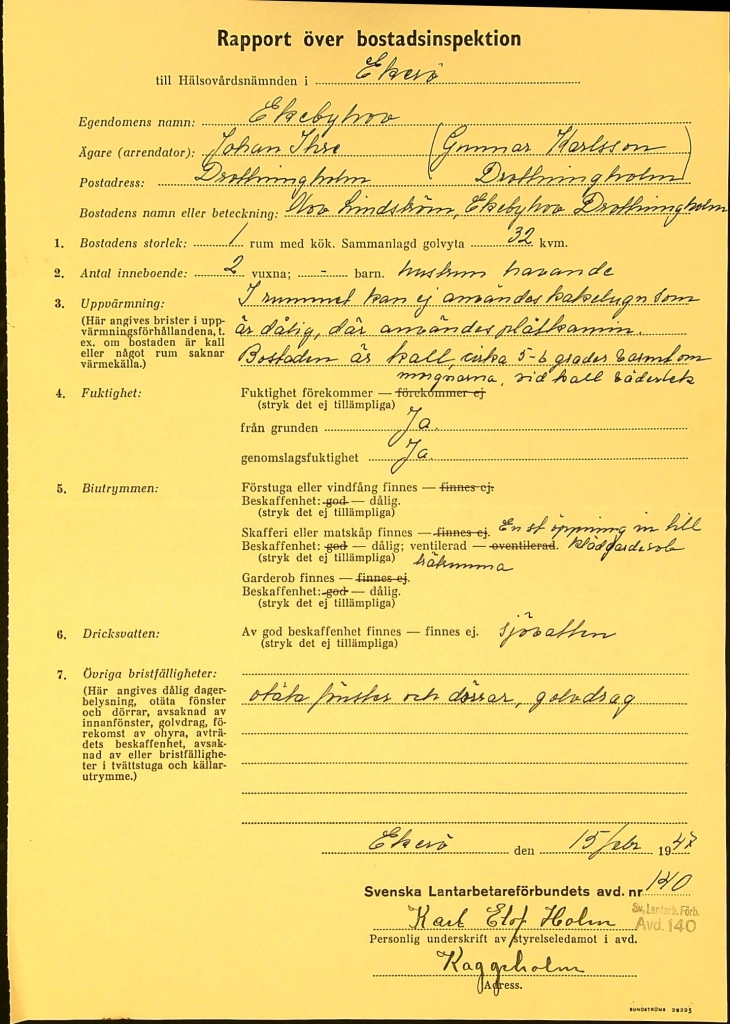 Rapport över bostadsinspektion
till Hälsovårdsnämnden i Ekerö
Egendomens namn: Ekebyhov
Ägare (arrendator): Johan Ihre (Gunnar Karlsson
Postadress: Drottningholm Drottningholm)
Bostadens namn eller beteckning: Lindström, Ekebyhov Drottningholm
1. Bostadens storlek: 1 rum med kök. Sammanlagd golvyta 32 kvm.
2. Antal inneboende: 2 vuxna; - barn. hustrun havande
3. Uppvärmning: I rummet kan ej användes kakelugn som
(Här angives brister i upp-
värmningsförhållandena, t.
ex. om bostaden är kall
eller något rum saknar
värmekälla.)
är dålig, där användes plåtkamin.
Bostaden är kall, cirka 5-6 grader varmt om
morgnarna, vid kall väderlek
4. Fuktighet: Fuktighet förekommer — förekommer ej
(stryk det ej tillämpliga)
från grunden Ja.
genomslagsfuktighet Ja.
5. Biutrymmen: Förstuga eller vindfång finnes — finnes ej.
Beskaffenhet: god — dålig.
(stryk det ej tillämpliga)
Skafferi eller matskåp finnes — finnes ej. En st öppning in till
Beskaffenhet: god — dålig; ventilerad — oventilerad. klädgarderob
(stryk det ej tillämpliga)
Garderob finnes — finnes ej.
Beskaffenhet: god — dålig.
(stryk det ej tillämpliga)
6. Dricksvatten: Av god beskaffenhet finnes — finnes ej. sjövatten
(stryk det ej tillämpliga)
7. Övriga bristfälligheter:
(Här angives dålig dager-
belysning, otäta fönster
och dörrar, avsaknad av
innanfönster, golvdrag, fö-
rekomst av ohyra, avträ-
dets beskaffenhet, avsak-
nad av eller bristfällighe-
ter i tvättstuga och källar-
utrymme.)
otäta fönster och dörrar, golvdrag
Ekerö den 15/febr 1947
Svenska Lantarbetareförbundets avd. nr 140
Sv. Lantarb. Förb.
Avd. 140
Karl Elof Holm
Personlig underskrift av styrelseledamot i avd.
Kaggeholm
Adress.
SUNDSTRÖMS 28225